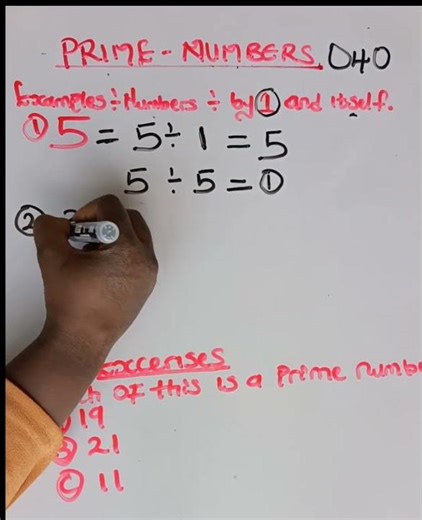 PRIME-NUMBERS D40
Examples ÷ Numbers ÷ by ① and itself.
① 5 = 5 ÷ 1 = 5
5 ÷ 5 = ①
②
Exccerises
of this is a prime numbe
19
B 21
C 11